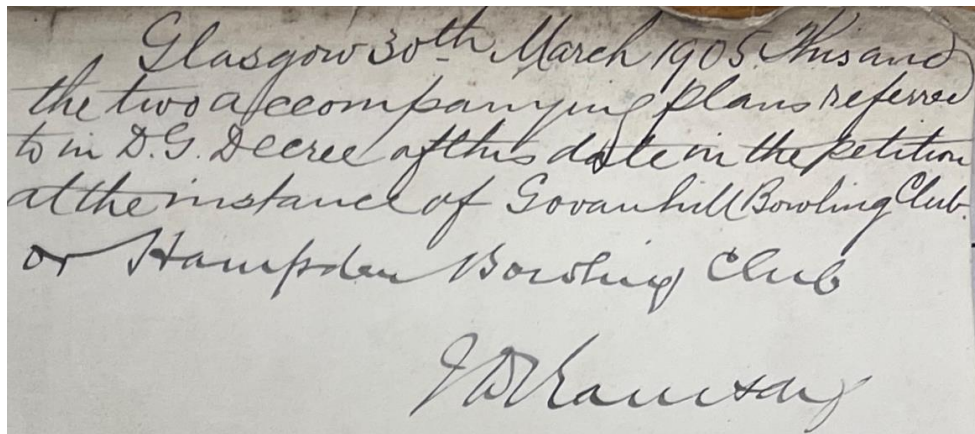 Glasgow 30th March 1905. This and
the two accompanying plans referred
to in D.G. Decree of this date in the petition
at the instance of Govanhill Bowling Club
or Hampden Bowling Club
Ramsay